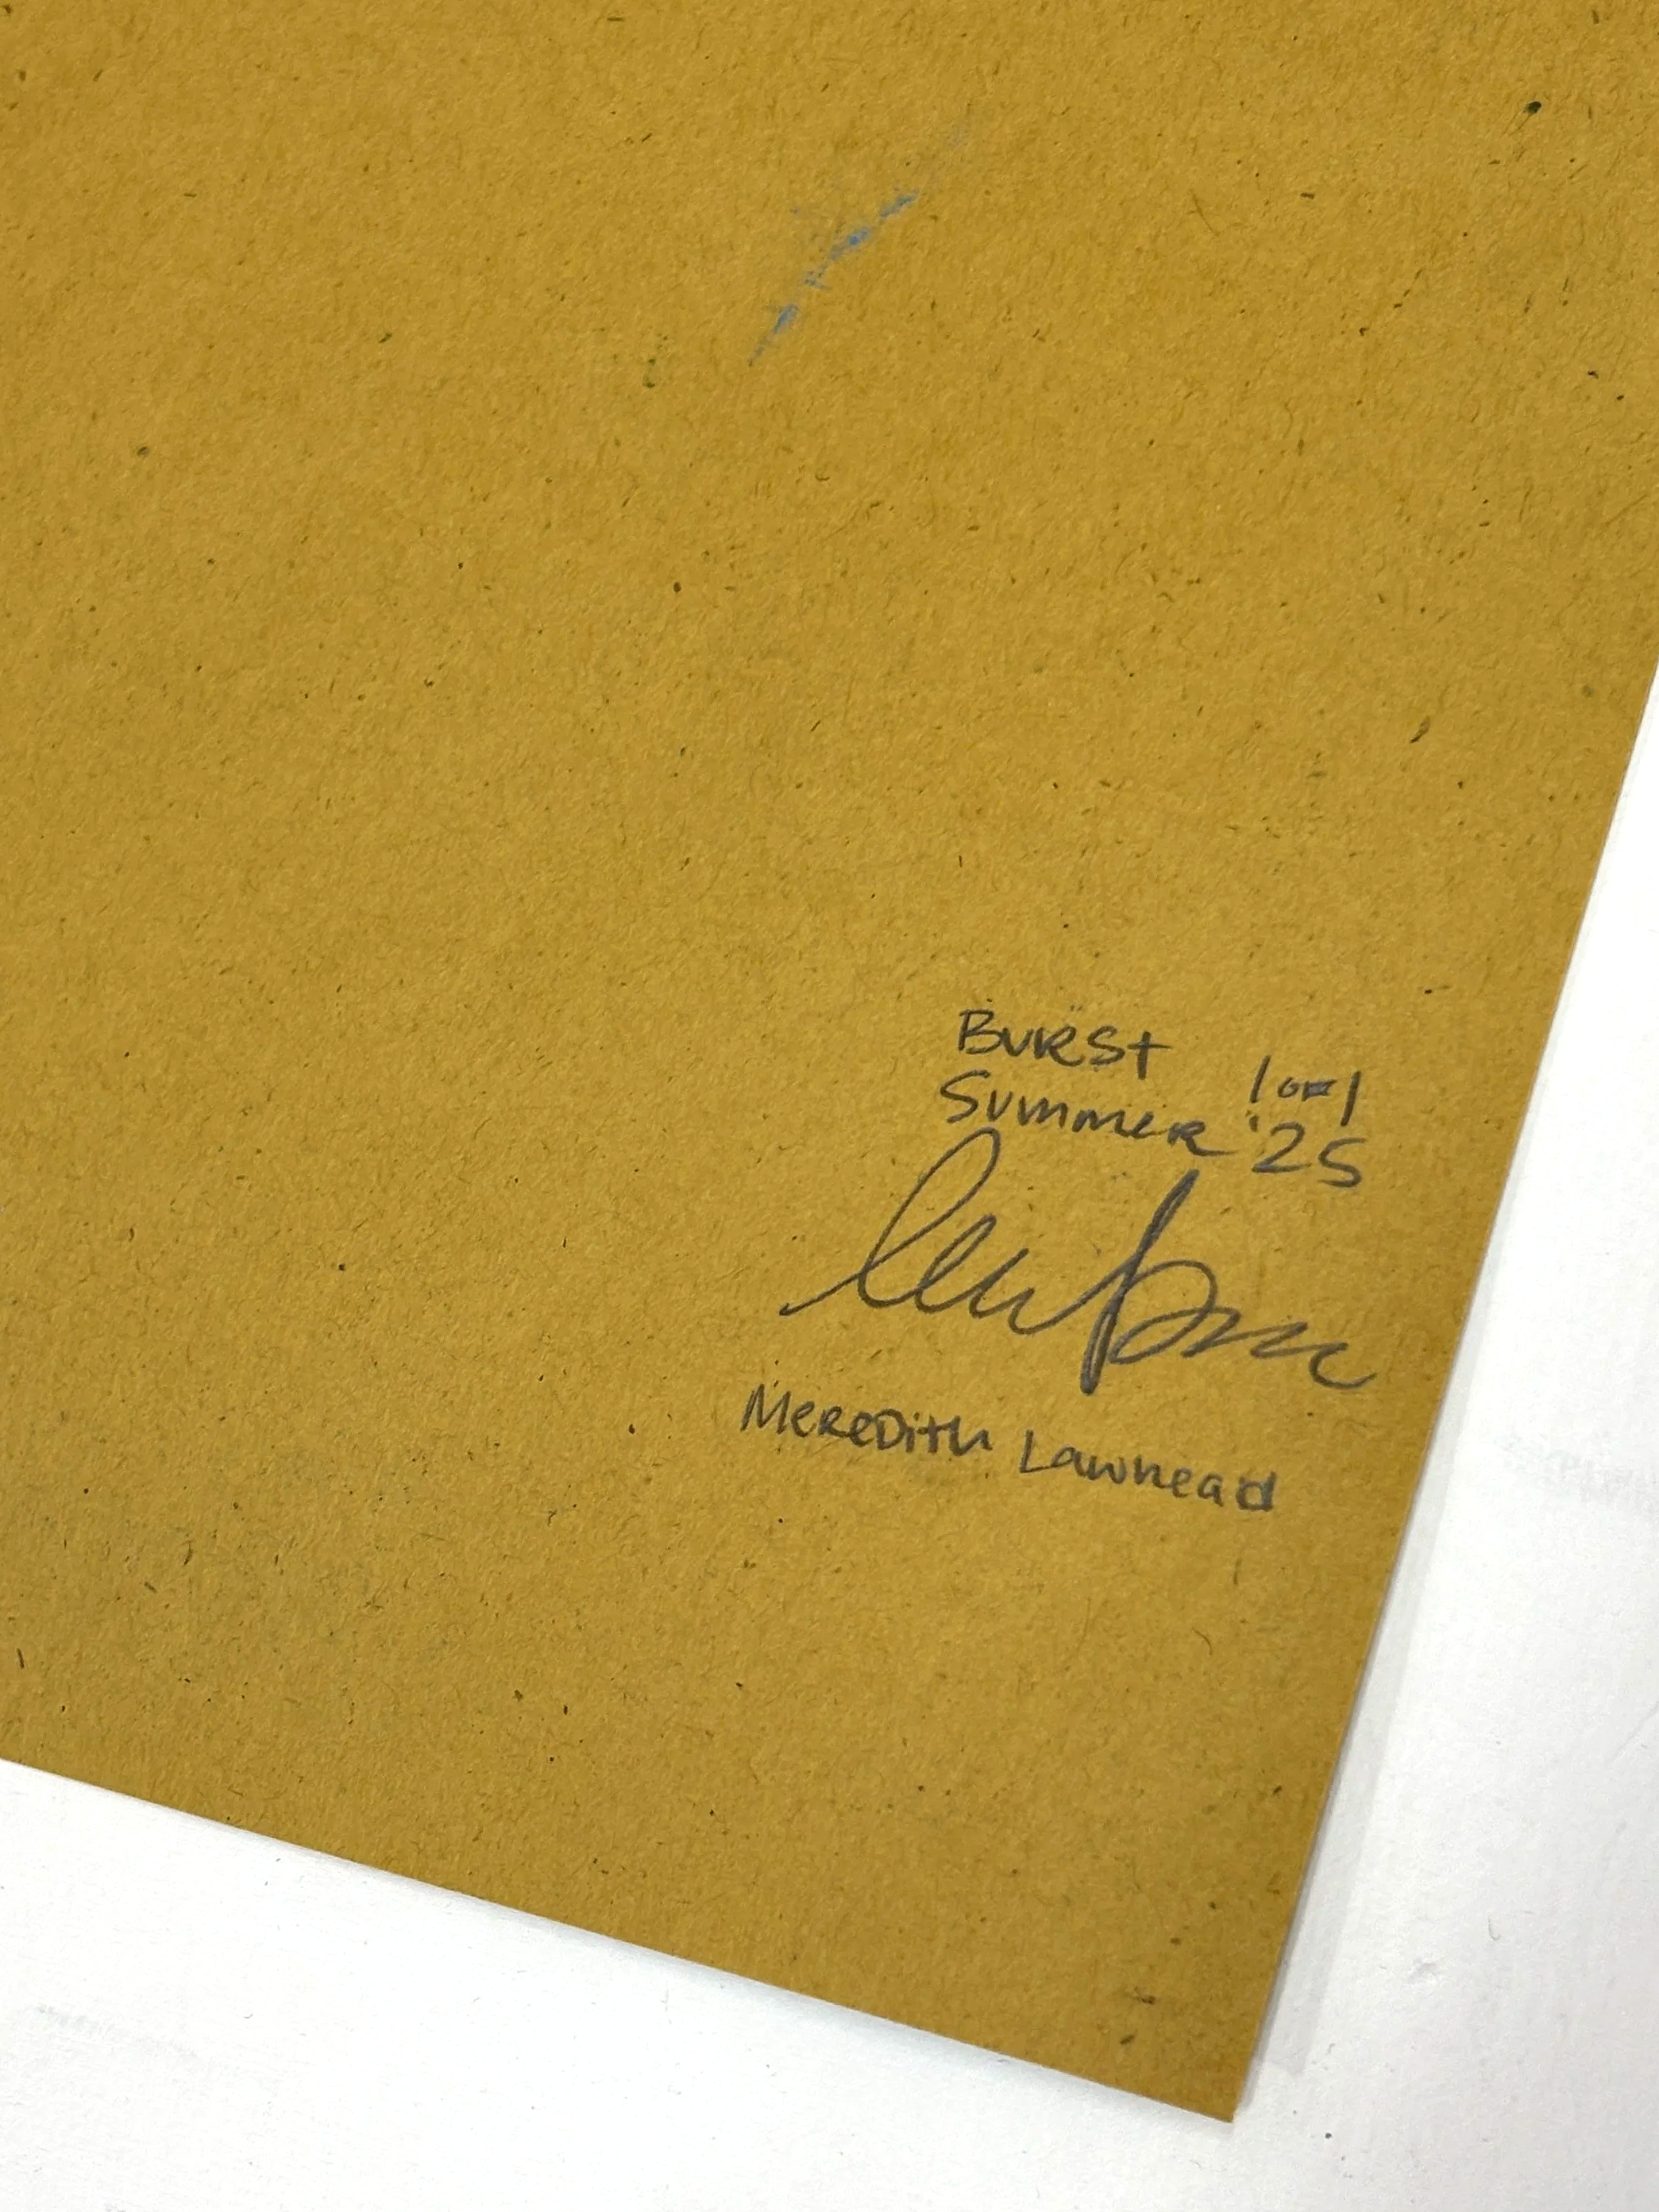 Burst
1 of 1
Summer '25
Meredith Lawhead